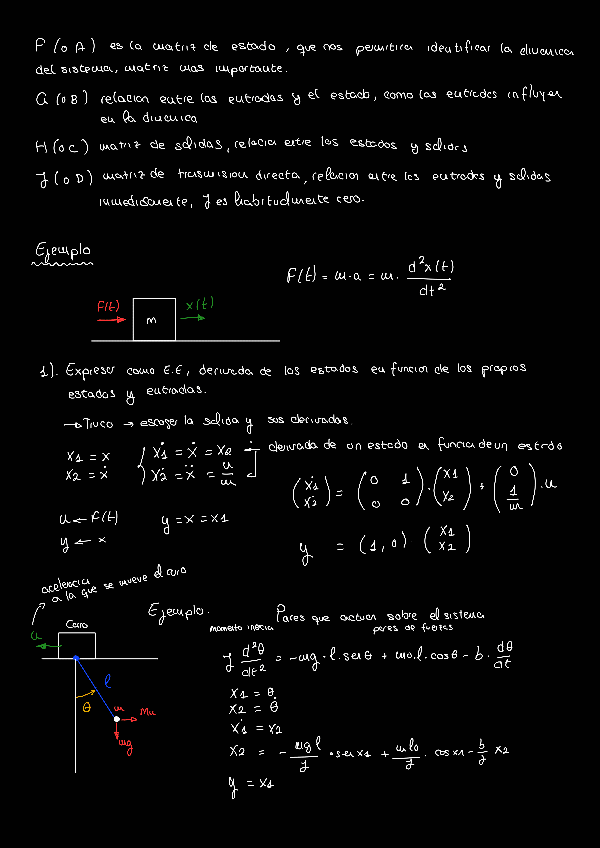 F (o A) es la matriz de estado, que nos permitira identificar la dinamica
del sistema, matriz mas importante.
G (o B) relacion entre las entradas y el estado, como las entradas influyen
en la dinamica
H (o C) matriz de salidas, relacion entre los estados y salidas
J (o D) matriz de trasmision directa, relacion entre las entradas y salidas
inmediatamente, J es habitualmente cero.
Ejemplo
F(t) = m·a = m· d²x(t)/dt²
F(t) m x(t)
1). Expresar como E.E, derivada de los estados en funcion de los propios
estados y entradas.
→ Truco → escoger la salida y sus derivadas.
x1 = x ẋ1 = ẋ = x2 derivada de un estado en funcion de un estado
x2 = ẋ ẋ2 = ẍ = u/m
(ẋ1 ẋ2) = (0 1 0 0) · (x1 x2) + (0 1/m) · u
u ← F(t) y = x = x1
y ← x
y = (1, 0) (x1 x2)
aceleracion
a la que se mueve el carro
Ejemplo. Pares que actuan sobre el sistema
momento inercia pares de fuerzas
Carro
u
J d²θ/dt² = -mg·l·senθ + mu·l·cosθ - b· dθ/dt
l
θ
m Mu
mg
x1 = θ
x2 = θ̇
ẋ1 = x2
x2 = - mgl/J · sen x1 + mlu/J · cos x1 - b/J x2
y = x1